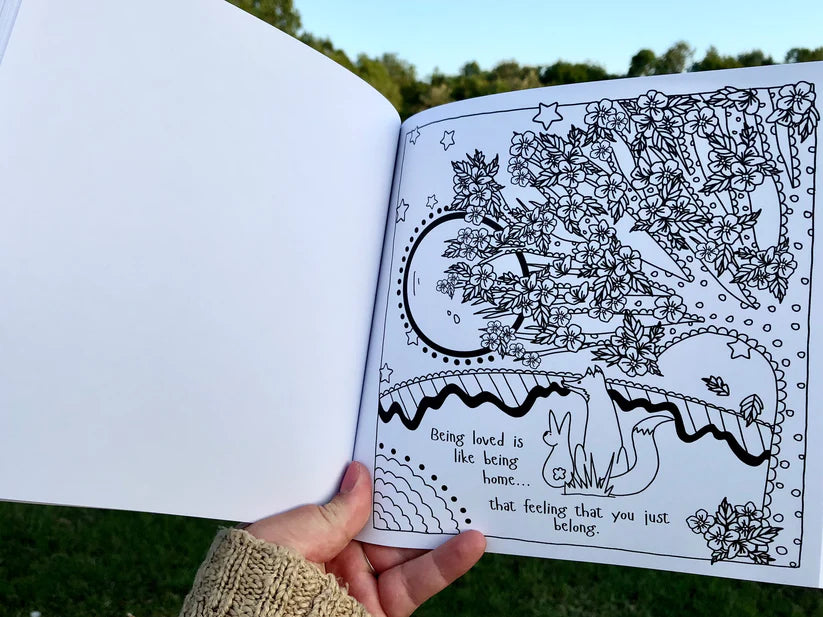 Being loved is
like being
home...
that feeling that you just
belong.